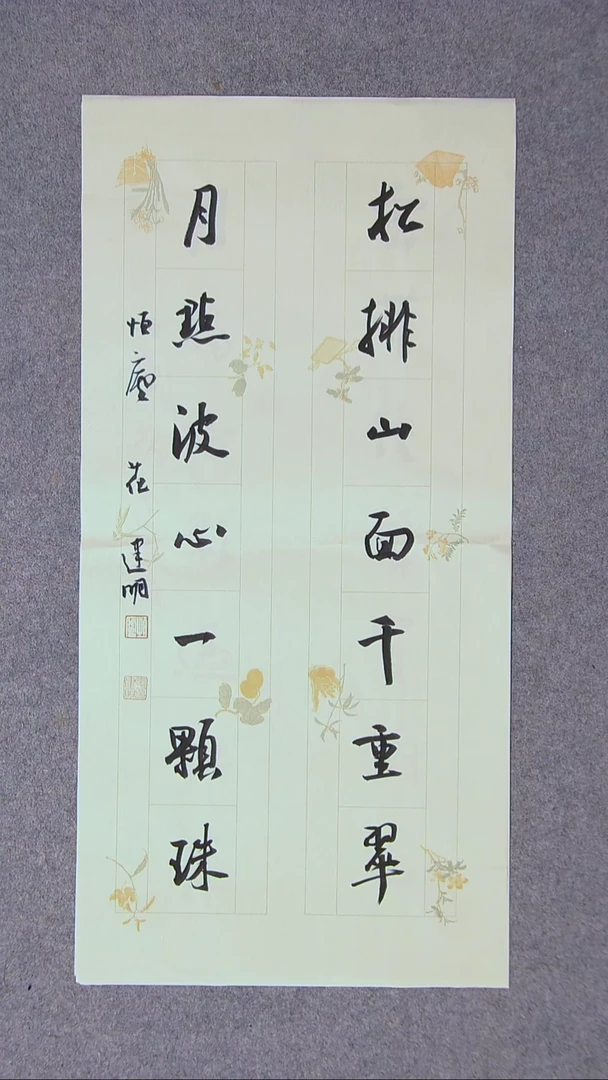 松排山面千重翠
月點波心一顆珠
恒廬 莊建明